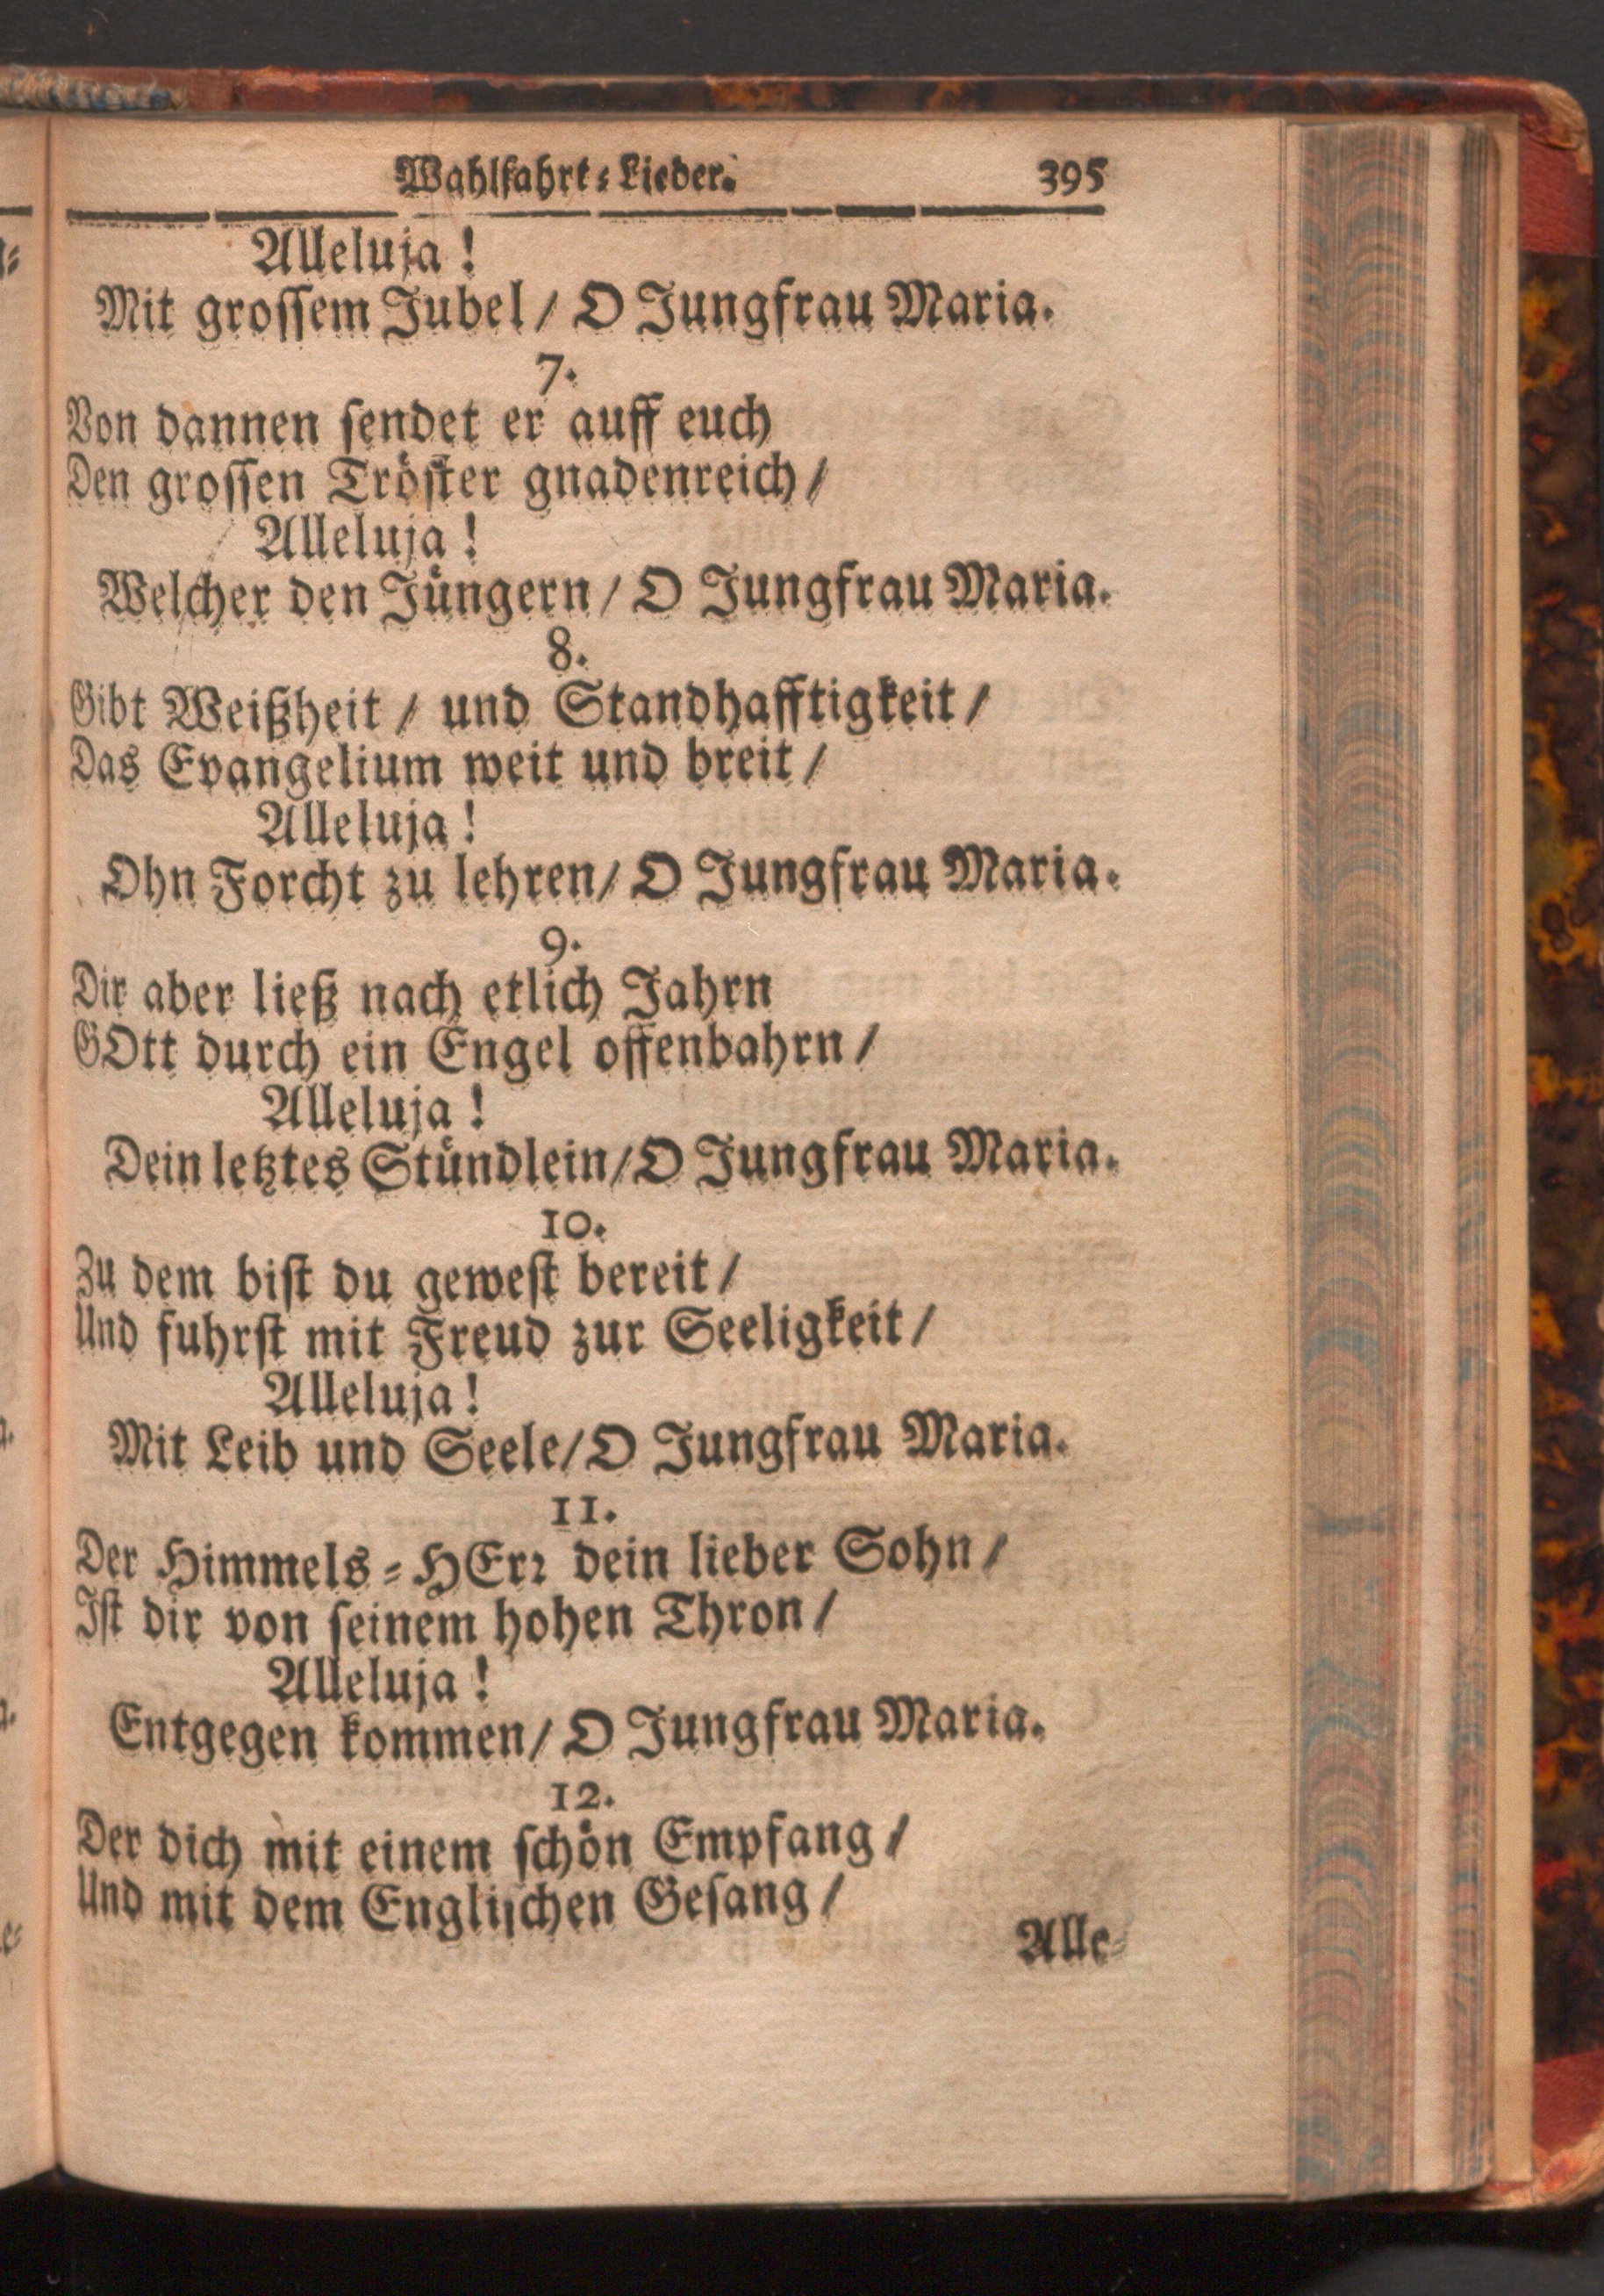 Wahlfahrt-Lieder. 395
Alleluja!
Mit grossem Jubel/ O Jungfrau Maria.
7.
Von dannen sendet er auff euch
Den grossen Tröster gnadenreich/
Alleluja!
Welcher den Jüngern/ O Jungfrau Maria.
8.
Gibt Weißheit/ und Standhafftigkeit/
Das Evangelium weit und breit/
Alleluja!
Ohn Forcht zu lehren/ O Jungfrau Maria.
9.
Dir aber ließ nach etlich Jahrn
GOtt durch ein Engel offenbahrn/
Alleluja!
Dein letztes Stündlein/ O Jungfrau Maria.
10.
Zu dem bist du gewest bereit/
Und fuhrst mit Freud zur Seeligkeit/
Alleluja!
Mit Leib und Seele/ O Jungfrau Maria.
11.
Der Himmels-HErr dein lieber Sohn/
Ist dir von seinem hohen Thron/
Alleluja!
Entgegen kommen/ O Jungfrau Maria.
12.
Der dich mit einem schön Empfang/
Und mit dem Englischen Gesang/
Alle-